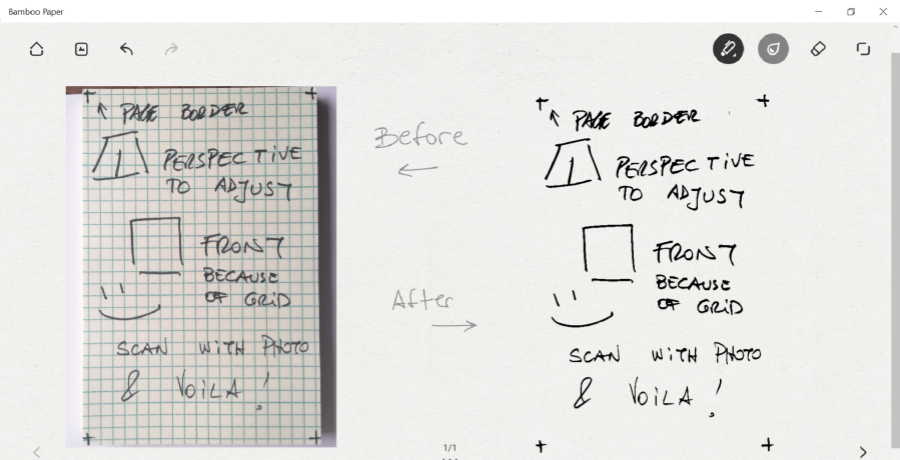 Bamboo Paper
↑ PAGE BORDER
PERSPECTIVE
TO ADJUST
FRONT
BECAUSE
OF GRID
SCAN WITH PHOTO
& VOILA!
Before
←
After
→
↑ PAGE BORDER
PERSPECTIVE
TO ADJUST
FRONT
BECAUSE
OF GRID
SCAN WITH PHOTO
& VOILA!
1/1